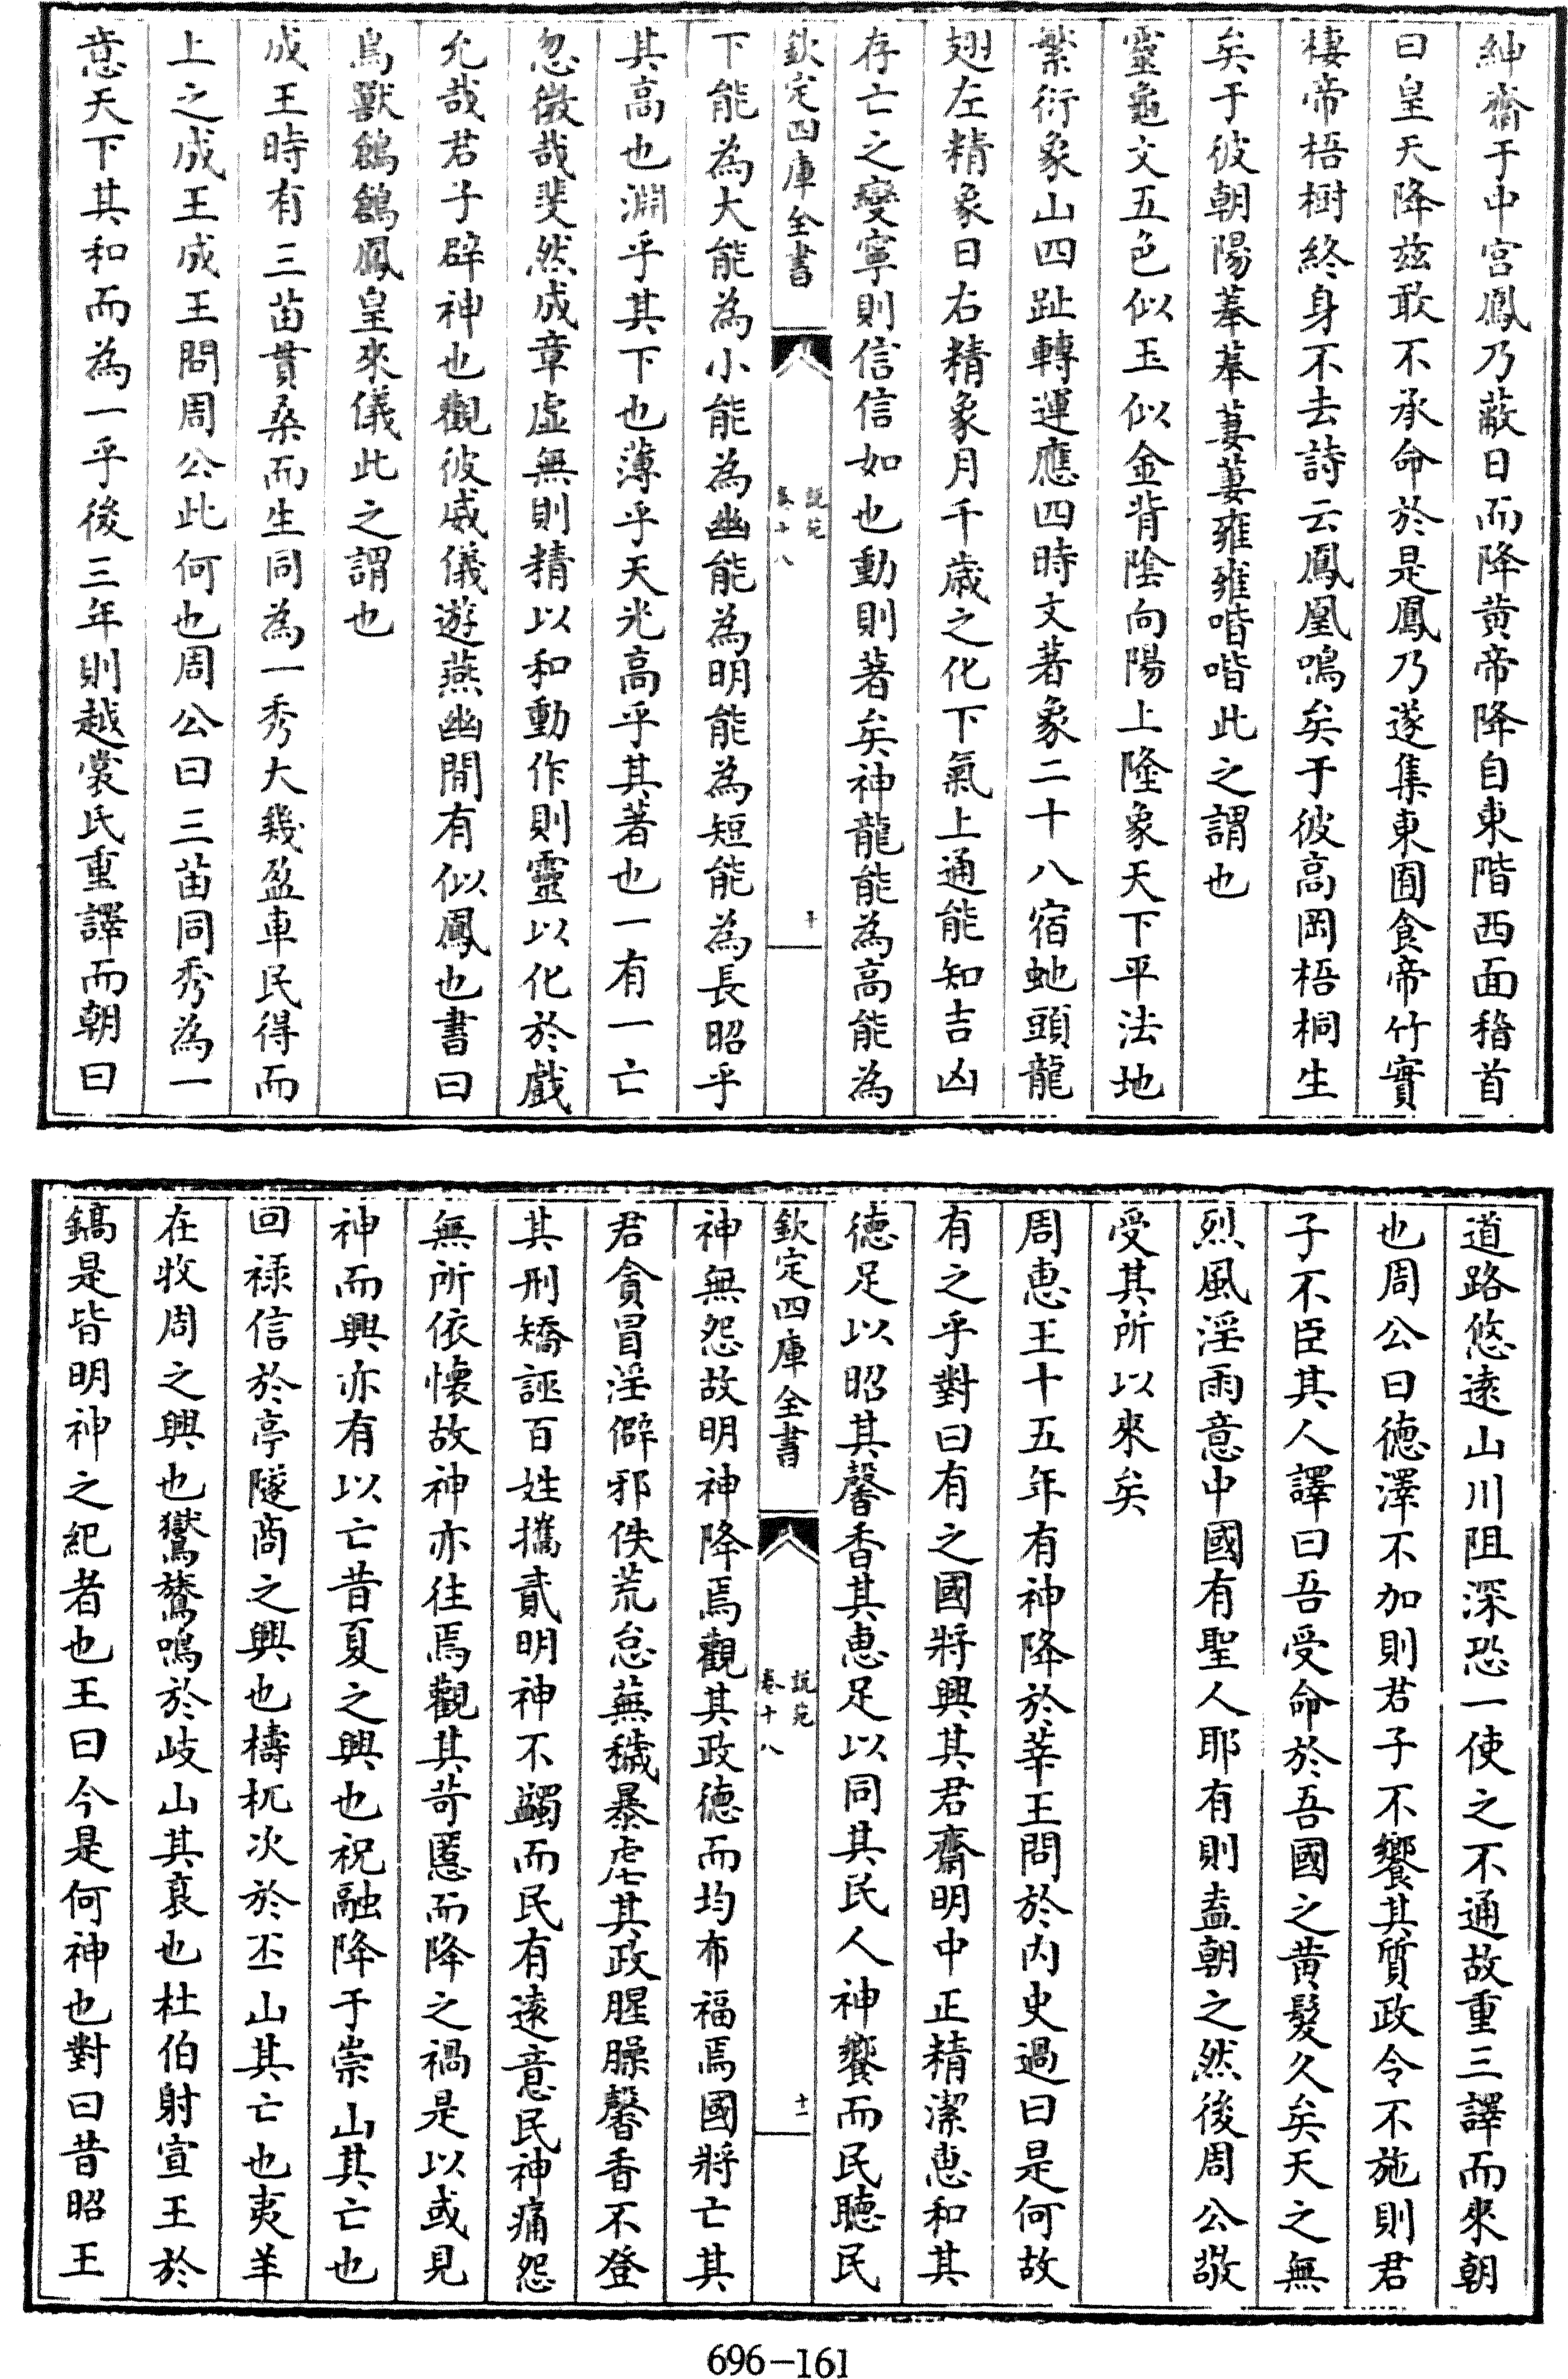 紳齋于中宮鳳乃蔽日而降黄帝降自東階西面稽首
曰皇天降兹敢不承命於是鳳乃遂集東囿食帝竹實
棲帝梧樹終身不去詩云鳳凰鳴矣于彼高岡梧桐生
矣于彼朝陽菶菶萋萋雍雍喈喈此之謂也
靈龜文五色似玉似金背陰向陽上隆象天下平法地
繁衍象山四趾轉運應四時文著象二十八宿虵頭龍
翅左精象日右精象月千歳之化下氣上通能知吉凶
存亡之變寧則信信如也動則著矣神龍能為高能為
欽定四庫全書
說苑
卷十八
十
下能為大能為小能為幽能為明能為短能為長昭乎
其高也淵乎其下也薄乎天光高乎其著也一有一亡
忽微哉斐然成章虚無則精以和動作則靈以化於戲
允哉君子辟神也觀彼威儀遊燕幽閒有似鳳也書曰
鳥獸鶬鶬鳳皇來儀此之謂也
成王時有三苗貫桑而生同為一秀大幾盈車民得而
上之成王成王問周公此何也周公曰三苗同秀為一
意天下其和而為一乎後三年則越裳氏重譯而朝曰
道路悠逺山川阻深恐一使之不通故重三譯而來朝
也周公曰德澤不加則君子不饗其質政令不施則君
子不臣其人譯曰吾受命於吾國之黄髮久矣天之無
烈風淫雨意中國有聖人耶有則盍朝之然後周公敬
受其所以來矣
周恵王十五年有神降於莘王問於内史過曰是何故
有之乎對曰有之國將興其君齋明中正精潔恵和其
德足以昭其馨香其恵足以同其民人神饗而民聽民
欽定四庫全書
說苑
卷十八
十一
神無怨故明神降焉觀其政德而均布福焉國將亡其
君貪冒淫僻邪佚荒怠蕪穢暴虐其政腥臊馨香不登
其刑矯誣百姓攜貳明神不蠲而民有逺意民神痛怨
無所依懐故神亦往焉觀其苛慝而降之禍是以或見
神而興亦有以亡昔夏之興也祝融降于崇山其亡也
回禄信於亭隧商之興也檮杌次於丕山其亡也夷羊
在牧周之興也鸑鷟鳴於岐山其衰也杜伯射宣王於
鎬是皆明神之紀者也王曰今是何神也對曰昔昭王
696-161